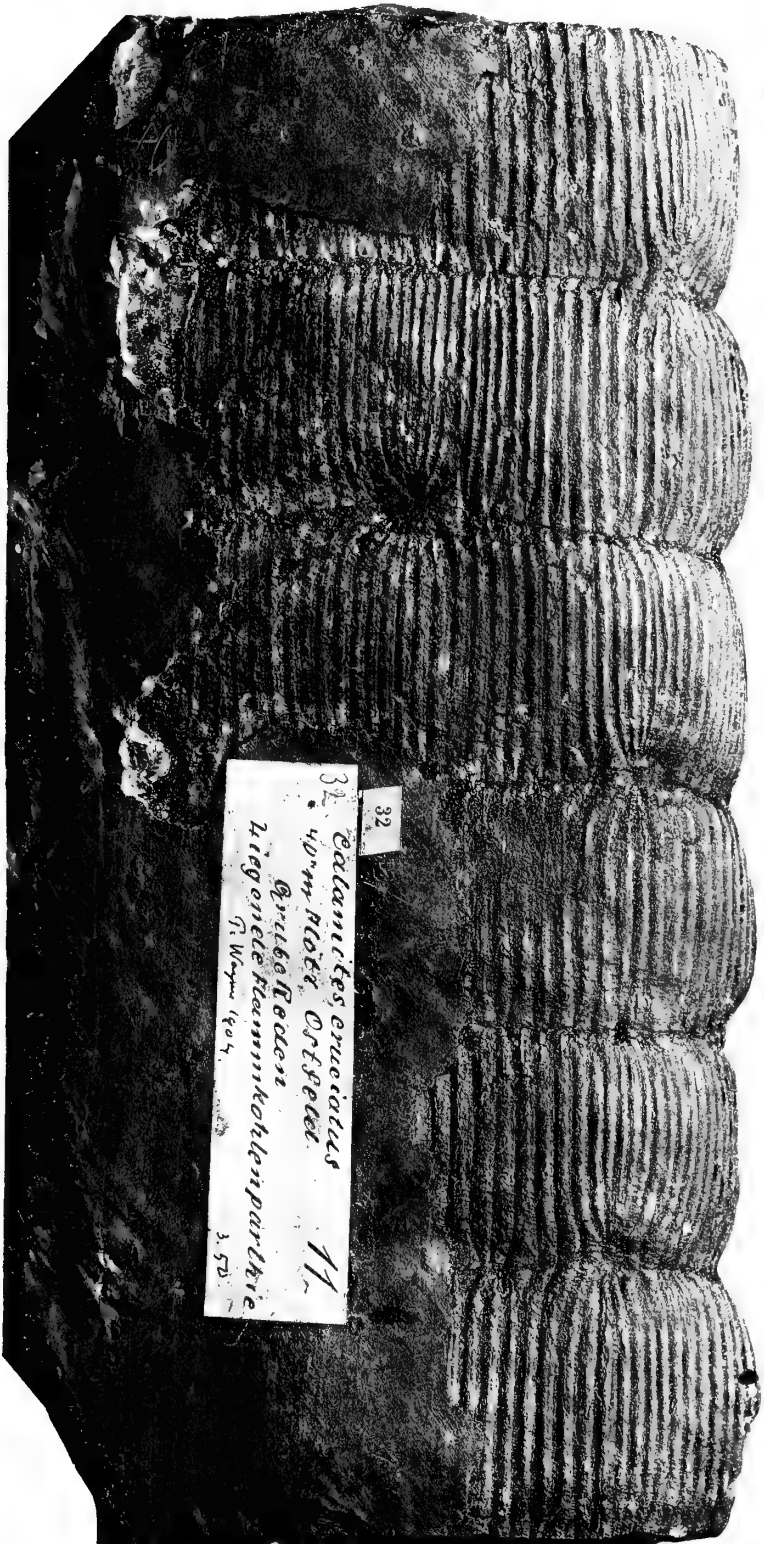 32
32 Calamites cruciatus
Flötz Ostfeld. 11
Grube Reden
Liegende Flammkohlenparthie
1904
3.50